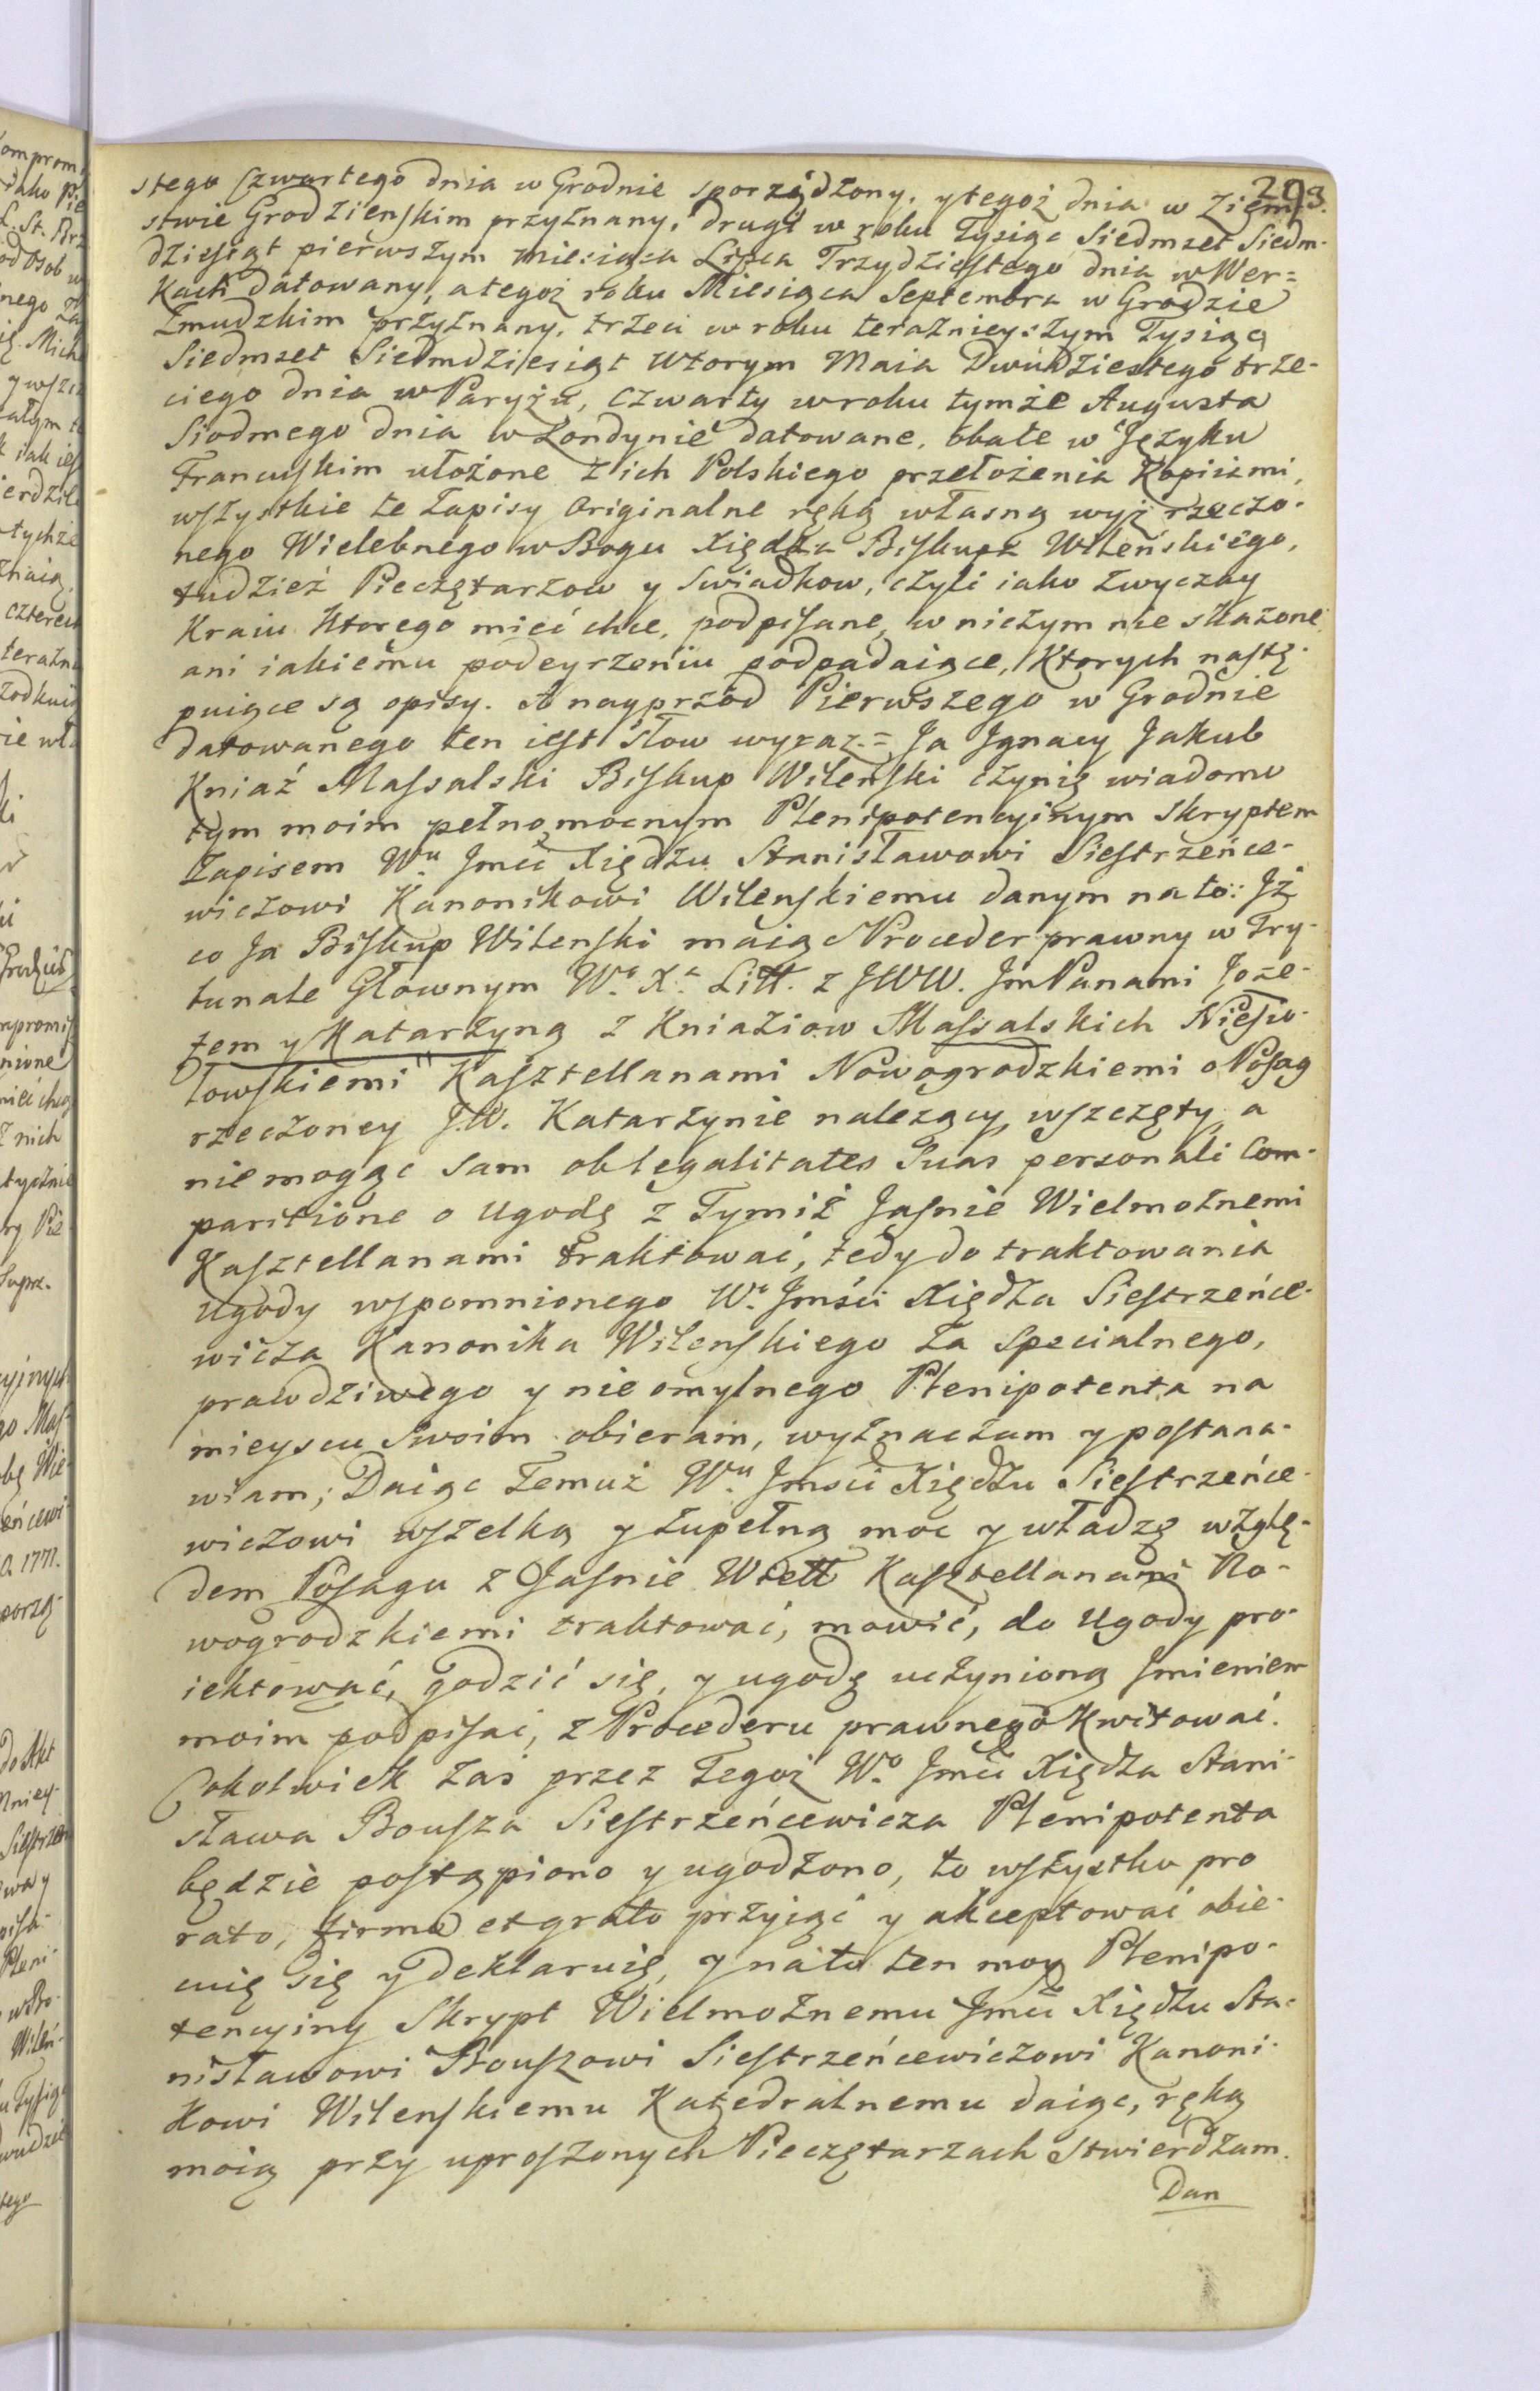 293.
stego czwartego dnia w Grodnie sporządzony, y tegoż dnia w Ziem-
stwie Grodzienskim przyznany, drugi w roku Tysiąc Siedmset Siedm-
dziesiąt pierwszym miesiąca Lipca Trzydziestego dnia w Wer=
kach datowany, a tegoż roku Miesiąca Septembra w Grodzie
Zmudzkim przyznany, trzeci w roku teraznieyszym Tysiąc
Siedmset Siedmdziesiąt wtorym Maia Dwudziestego trze-
ciego dnia w Paryżu, czwarty w roku tymże Augusta
Siodmego dnia w Londynie datowane, obale w Języku
Francuskim ułożone z ich Polskiego przełożenia Kopiiami,
wszystkie te zapisy originalne ręką własną wyż rzeczo-
nego Wielebnego w Bogu Xiędza Biskupa Wileńskiego,
tudzież Pieczętarzow y Swiadkow, czyli iako zwyczay
Kraiu Ktorego mieć chce, podpisane, w niczym nie skażone
ani iakiemu podeyrzeniu podpadaiące, Ktorych nastę-
puiące są opisy. A nayprzod Pierwszego w Grodnie
datowanego ten iest słow wyraz.= Ja Jgnacy Jakub
Kniaź Massalski Biskup Wilenski czynię wiadomo
tym moim pełnomocnym Plenipotencyinym skryptem
Zapisem Wu. Jmci Xiędzu Stanisławowi Siestrzeńce-
wiczowi Kanonikowi Wilenskiemu danym na to: Jż
co Ja Biskup Wilenski maiąc Proceder prawny w Try-
bunale Głownym Wo. Xa. Litt. z JWW. Jm Panami Joze-
fem y Katarzyną z Kniaziow Massalskich Niesio-
łowskiemi Kasztellanami Nowogrodzkiemi o Posag
rzeczoney J.W. Katarzynie należący, wszczęty, a
nie mogąc sam ob legalitates suas personali Com-
paritione o Ugodę z Tymiż Jasnie Wielmożnemi
Kasztellanami traktować, tedy do traktowania
Ugody wspomnionego Wo. Jmści Xiędza Siestrzeńce-
wicza Kanonika Wilenskiego za specialnego,
prawdziwego y nie omylnego Plenipotenta na
mieyscu swoim obieram, wyznaczam y postana-
wiam; Daiąc Temuż Wu. Jmsci Xiędzu Siestrzeńce-
wiczowi wszelką y zupełną moc y władzę wzglę-
dem Posagu z Jasnie Wiell Kasztellanami No-
wogrodzkiemi traktować, mowić, do Ugody pro-
iektować, godzić się, y ugodę uczynioną Jmieniem
moim podpisać, z Procederu prawnego Kwitować.
Cokolwiek zaś przez Tegoż Wo. Jmci Xiędza Stani-
sława Bousza Siestrzeńcewicza Plenipotenta
będzie postąpiono y ugodzono, to wszystko pro
rato, firmo et grato przyiąć y akceptować obie-
cuię się y deklaruię, y na to ten moy Plenipo-
tencyiny Skrypt Wielmożnemu Jmci Xiędzu Sta-
nisławowi Bouszowi Siestrzeńcewiczowi Kanoni-
kowi Wilenskiemu Katedralnemu daiąc, ręką
moią przy uproszonych Pieczętarzach stwierdzam.
Dan